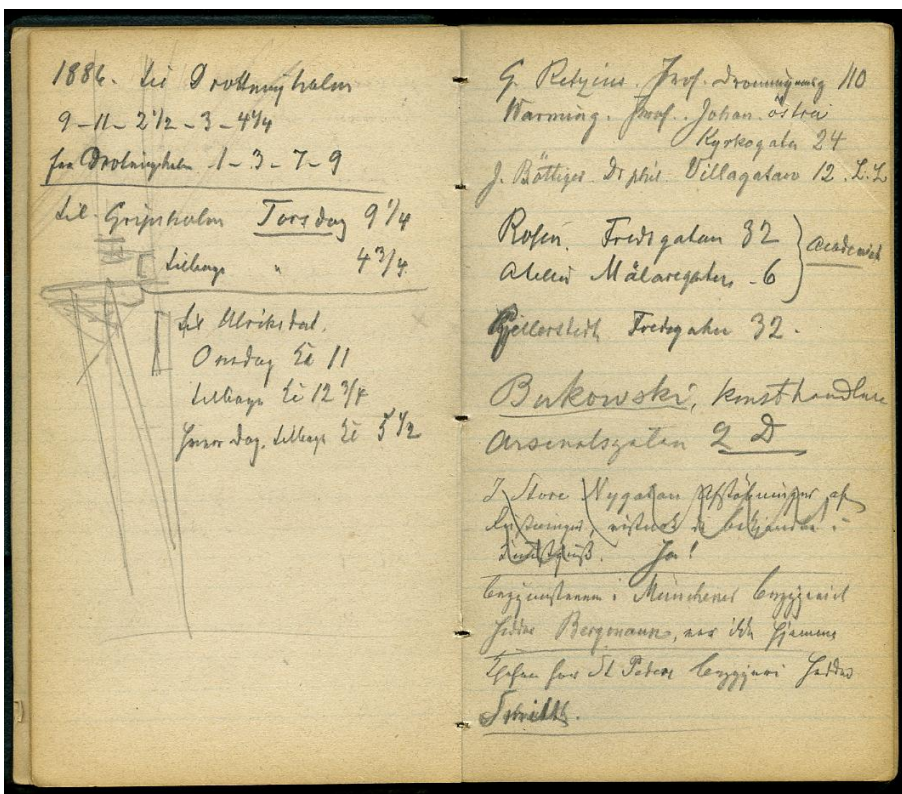 1886. til Drottningholm
9 - 11 - 2 1/2 - 3 - 4 1/4
fra Drotningholm 1 - 3 - 7 - 9
til Gripsholm Torsdag 9 1/4
tilbage " 4 3/4
til Ulriksdal.
Onsdag Kl 11
tilbage Kl 12 3/4
hver Dag. tilbage Kl 5 1/2
G. Retzius. Prof. 110
Warming. Prof. Johan. östra
Kyrkogatan 24
J. Böttiger Dr phil. Villagatan 12.
Rosén. Fredsgatan 32
Atelier Mälaregatan 6
Academiet
Gjellerstedt Fredsgatan 32.
Bukowski, Konsthandlare
Arsenalsgatan 2 D
I Store Nygatan Afstøbninger af
i
Ja!
i Münchener
hedder Bergmann, var ikke hjemme
for St Peders Bryggeri hedder